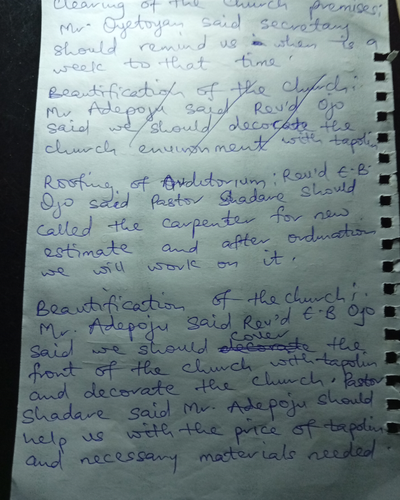 Clearing of the church premises;
Mr. Oyetoyan said secretary
should remind us when is a
week to that time.
Beautification of the church:
Mr Adepoju said Rev'd Ojo
said we should decorate the
church environment with tapolin
Roofing of Auditorium: Rev'd E.B.
Ojo said Pastor Shadare should
called the carpenter for new
estimate and after ordination
we will work on it.
Beautification of the church;.
Mr. Adepoju said Rev'd E.B Ojo
said we should decorate cover the
front of the church with tapolin
and decorate the church. Pastor
Shadare said Mr. Adepoju should
help us with the price of tapolin
and necessary materials needed.